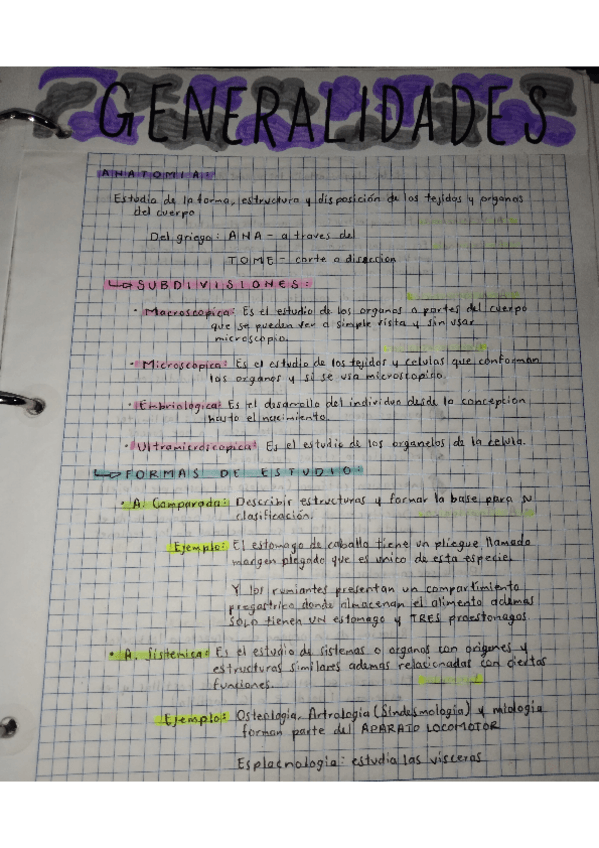 GENERALIDADES
ANATOMIA:
Estudio de la forma, estructura y disposición de los tejidos y organos
del cuerpo
Del griego: ANA - a traves de
TOME - corte o diseccion
SUBDIVISIONES:
• Macroscopica: Es el estudio de los organos o partes del cuerpo
que se pueden ver a simple vista y sin usar
microscopio.
• Microscopica: Es el estudio de los tejidos y celulas que conforman
los organos y si se usa microscopio.
• Embriologica: Es el desarrollo del individuo desde la concepcion
hasta el nacimiento.
• Ultramicroscopica: Es el estudio de los organelos de la celula.
FORMAS DE ESTUDIO:
• A. Comparada: Describir estructuras y formar la base para su
clasificación.
Ejemplo: El estomago de caballo tiene un pliegue llamado
margen plegado que es unico de esta especie.
Y los rumiantes presentan un compartimiento
pregastrico donde almacenan el alimento ademas
SOLO tienen UN estomago y TRES proestomagos.
• A. Sistemica: Es el estudio de sistemas o organos con origenes y
estructuras similares ademas relacionadas con ciertas
funciones.
Ejemplo: Osteologia, Artrologia (Sindesmologia) y miologia
forman parte del APARATO LOCOMOTOR
Esplacnologia: estudia las visceras